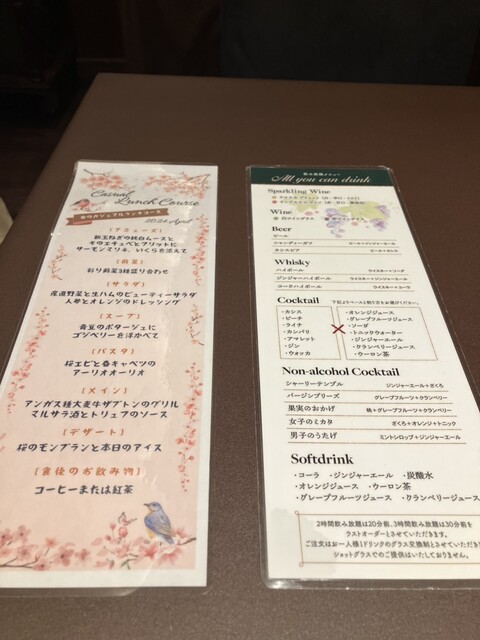 Casual
Lunch Course
春のカジュアルランチコース
2024 April
(アミューズ)
新玉ねぎの純白ムースと
キウイキュベとフリットに
サーモンマリネ、いくらを添えて
(前菜)
彩り前菜3種盛り合わせ
(サラダ)
産直野菜と生ハムのビューティーサラダ
人参とオレンジのドレッシング
(スープ)
青豆のポタージュに
ゴジベリーを浮かべて
(パスタ)
桜エビと春キャベツの
アーリオオーリオ
(メイン)
アンガス種大麦牛ザブトンのグリル
マルサラ酒とトリュフのソース
(デザート)
桜のモンブランと本日のアイス
(食後のお飲み物)
コーヒーまたは紅茶
飲み放題メニュー
All you can drink
Sparkling Wine
Wine
白ワイングラス
Beer
ビール
シャンディーガフ ビール+ジンジャーエール
カシスビア ビール+カシス
Whisky
ハイボール ウイスキー+ソーダ
ジンジャーハイボール ウイスキー+ジンジャーエール
コークハイボール ウイスキー+コーラ
Cocktail 下記よりベースと割り方をお選びください。
・カシス
・ピーチ
・ライチ
・カンパリ
・アマレット
・ジン
・ウォッカ
×
・オレンジジュース
・グレープフルーツジュース
・ソーダ
・トニックウォーター
・ジンジャーエール
・クランベリージュース
・ウーロン茶
Non-alcohol Cocktail
シャーリーテンプル ジンジャーエール+ざくろ
バージンブリーズ グレープフルーツ+クランベリー
果実のおかげ 桃+グレープフルーツ+クランベリー
女子のミカタ ざくろ+オレンジ+トニック
男子のうたげ ミントシロップ+ジンジャーエール
Softdrink
・コーラ ・ジンジャーエール ・炭酸水
・オレンジジュース ・ウーロン茶
・グレープフルーツジュース ・クランベリージュース
2時間飲み放題は20分前、3時間飲み放題は30分前を
ラストオーダーとさせていただきます。
ご注文はお一人様1ドリンクのグラス交換制とさせていただき
ショットグラスでのご提供はいたしておりません。